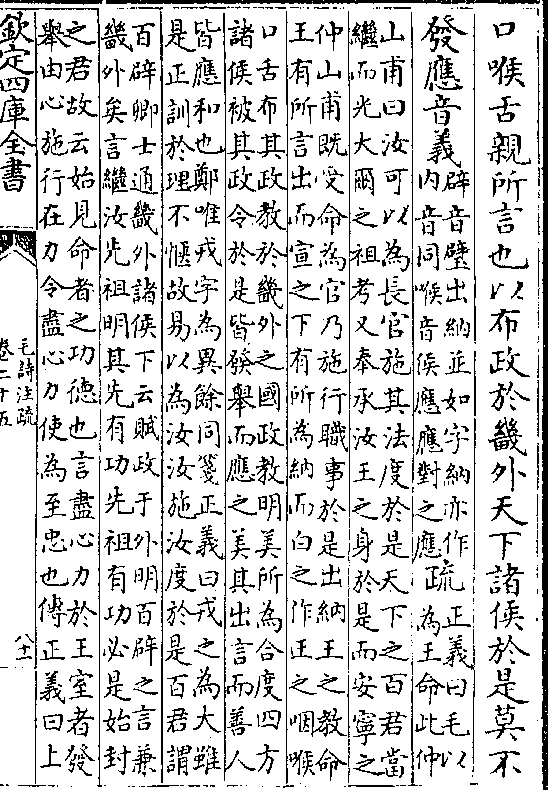 口喉舌親所言也以布政於畿外天下諸侯於是莫不
發應音義辟音璧出納並如字納亦作
内音同喉音侯應應對之應疏正義曰毛以
為王命此仲
山甫曰汝可以為長官施其法度於是天下之百君當
繼而光大爾之祖考又奉承汝王之身於是而安寧之
仲山甫既受命為官乃施行職事於是出納王之教命
王有所言出而宣之下有所為納而白之作王之咽喉
口舌布其政教於畿外之國政教明美所為合度四方
諸侯被其政令於是皆發舉而應之美其出言而善人
皆應和也鄭唯戎字為異餘同箋正義曰戎之為大雖
是正訓於理不愜故易以為汝汝施汝度於是百君謂
百辟卿士通畿外諸侯下云賦政于外明百辟之言兼
畿外矣言繼汝先祖明其先有功先祖有功必是始封
之君故云始見命者之功徳也言盡心力於王室者發
舉由心施行在力令盡心力使為至忠也傳正義曰上
欽定四庫全書
毛詩注疏
卷二十五
八十一